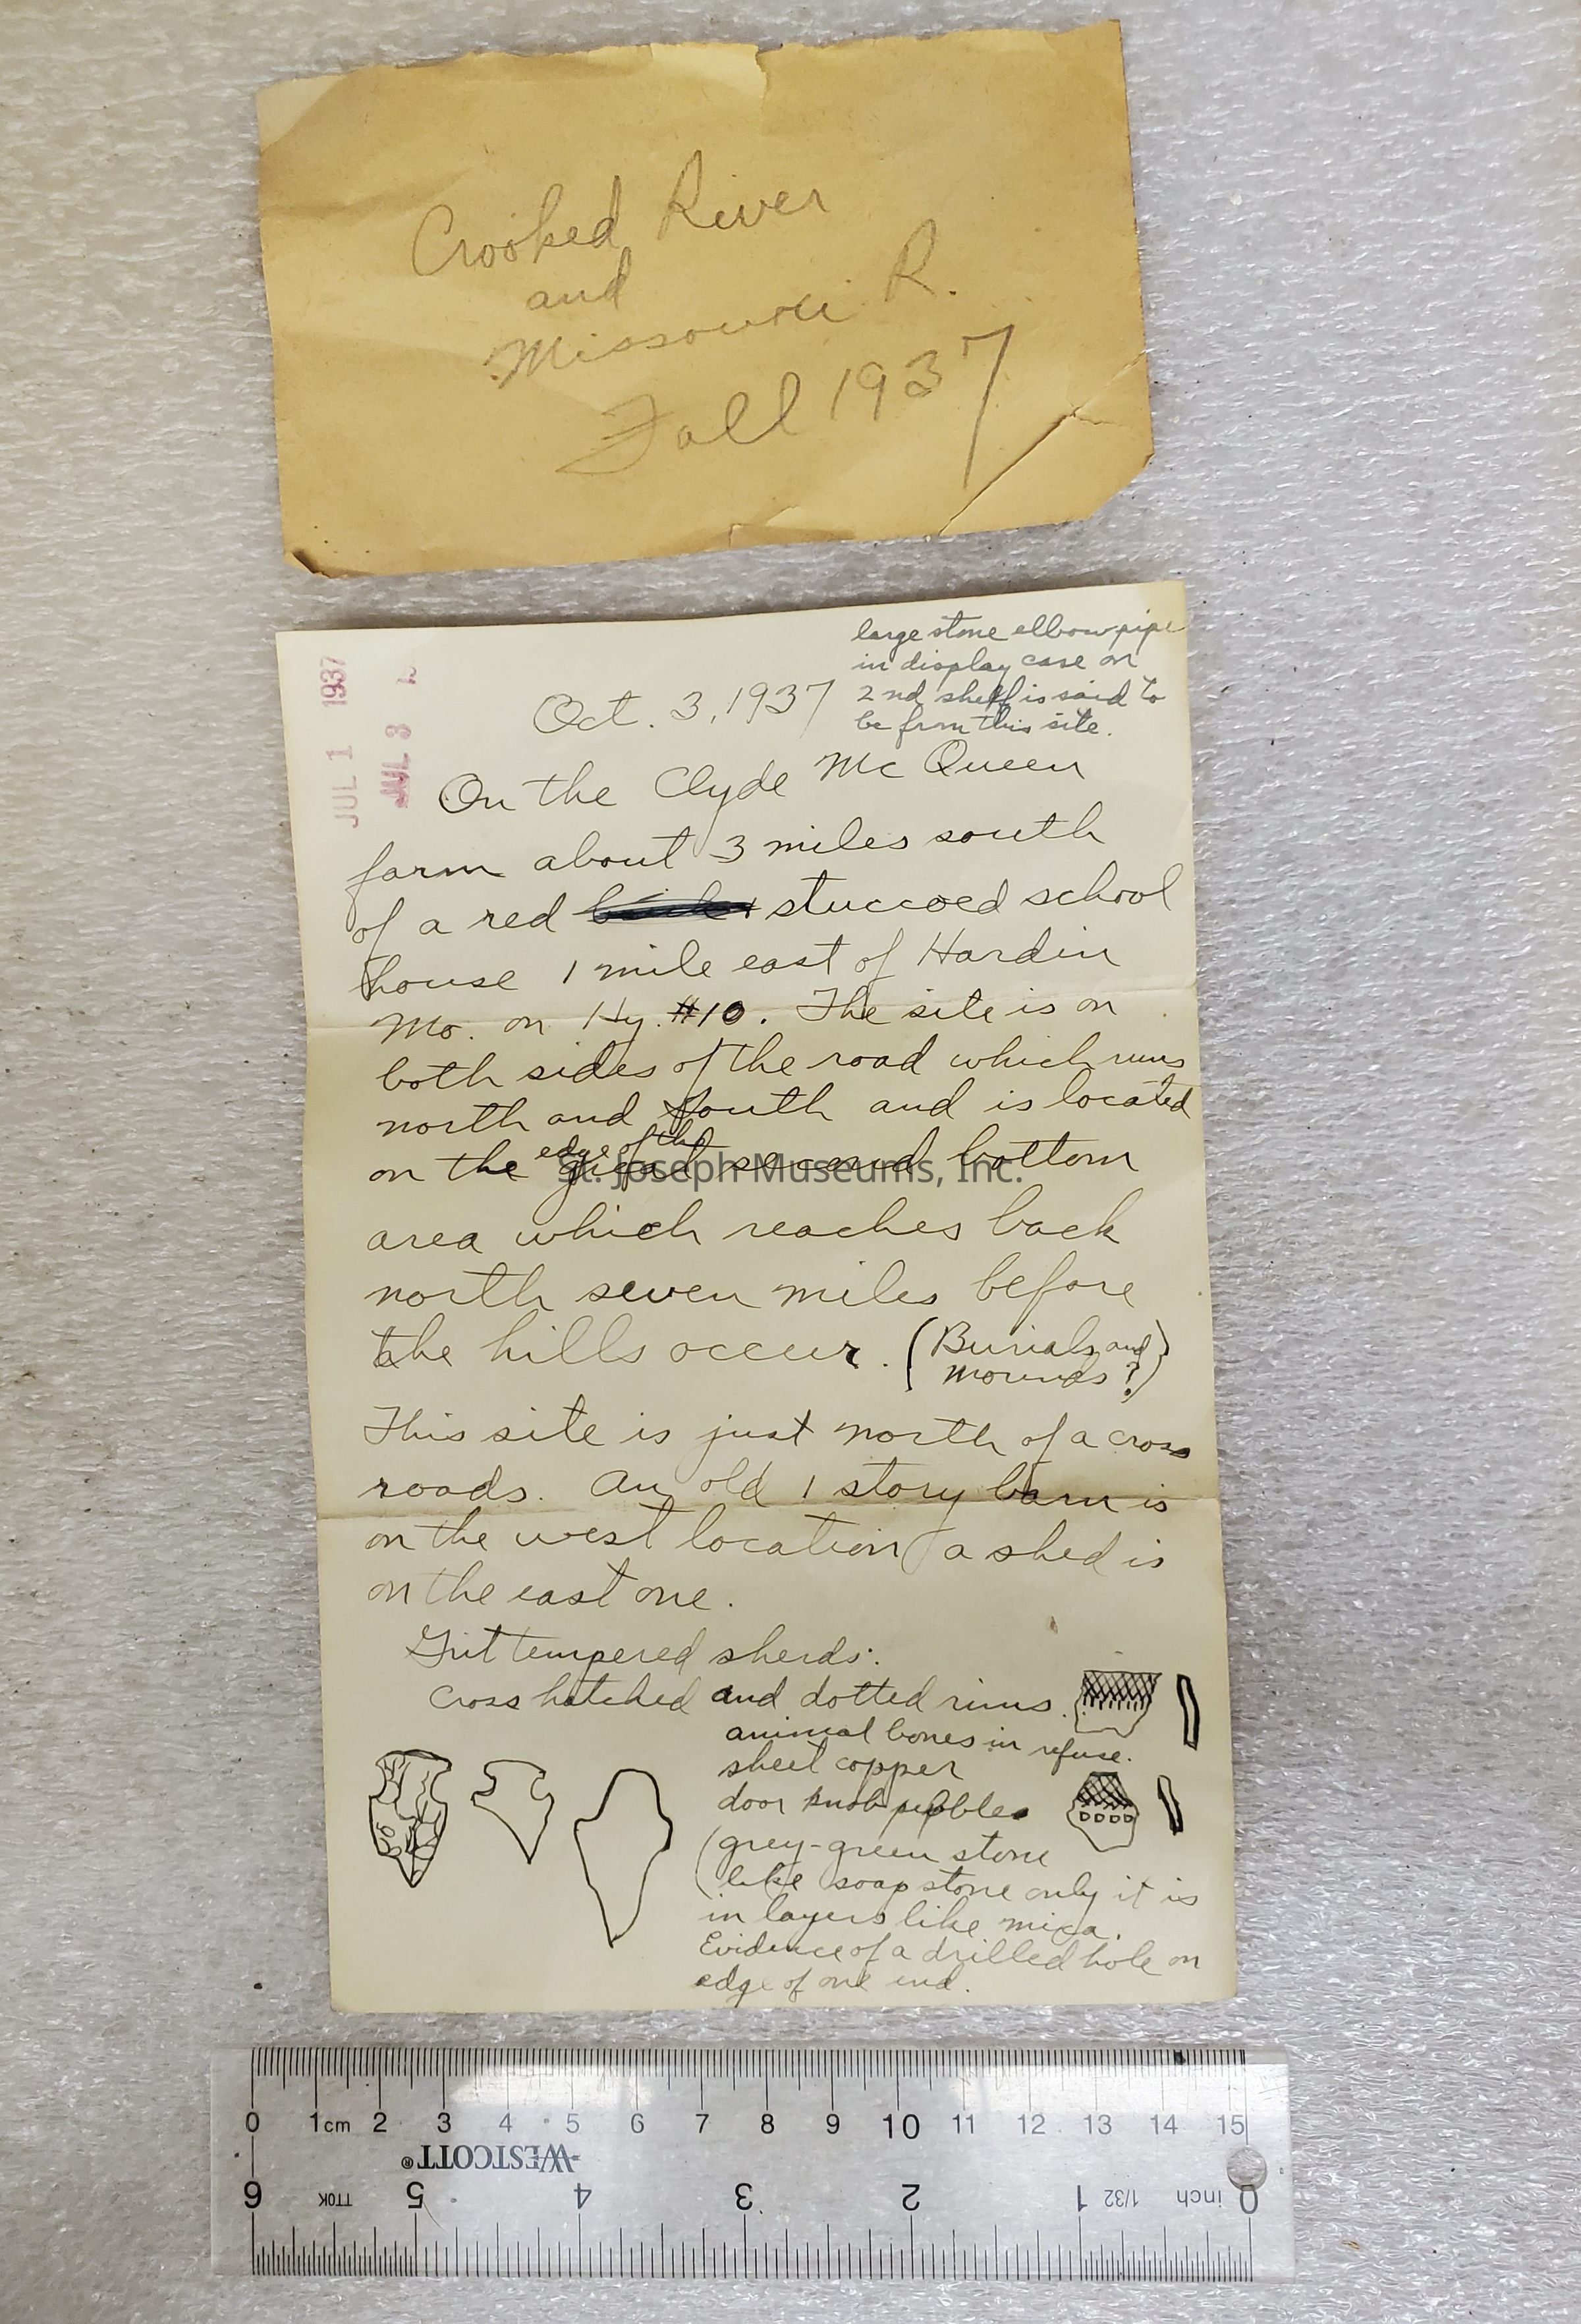 Crooked River
and
Missouri R.
Fall 1937
JUL 1 1937
JUL 3
large stone elbow pipe
in display case on
2nd shelf is said to
be from this site.
Oct. 3, 1937
On the Clyde McQueen
farm about 3 miles south
of a red stuccoed school
house 1 mile east of Hardin
Mo. on Hy. #10. The site is on
both sides of the road which runs
north and south and is located
on the edge of the second bottom
area which reaches back
north seven miles before
the hills occur. (Burials and
mounds?)
This site is just north of a cross
roads. An old 1 story barn is
on the west location a shed is
on the east one.
Grit tempered sherds:
cross hatched and dotted rims.
animal bones in refuse.
sheet copper
door knob pebbles
(grey-green stone
like soap stone only it is
in layers like mica.
Evidence of a drilled hole on
edge of one end.
St. Joseph Museums, Inc.
0 1cm 2 3 4 5 6 7 8 9 10 11 12 13 14 15
WESTCOTT®
6 TT0K 5 4 3 2 1 1/32 inch 0